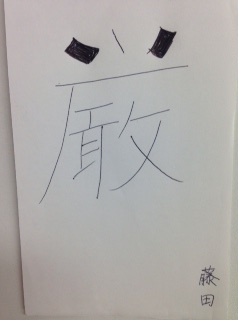 厳
藤田